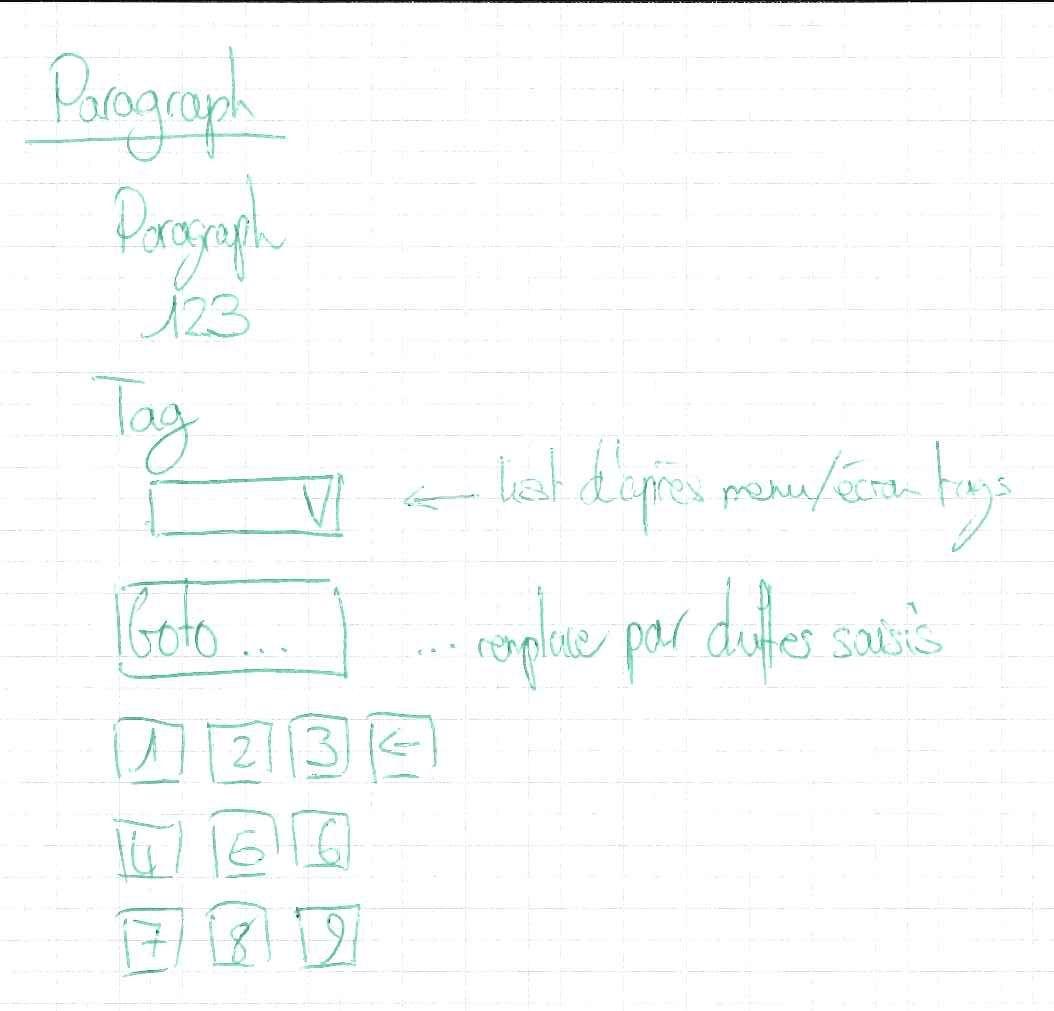 Paragraph
Paragraph
123
Tag
V ← list d'après menu/écran tags
Goto ... ... remplace par chiffres saisis
1 2 3 ←
4 5 6
7 8 9